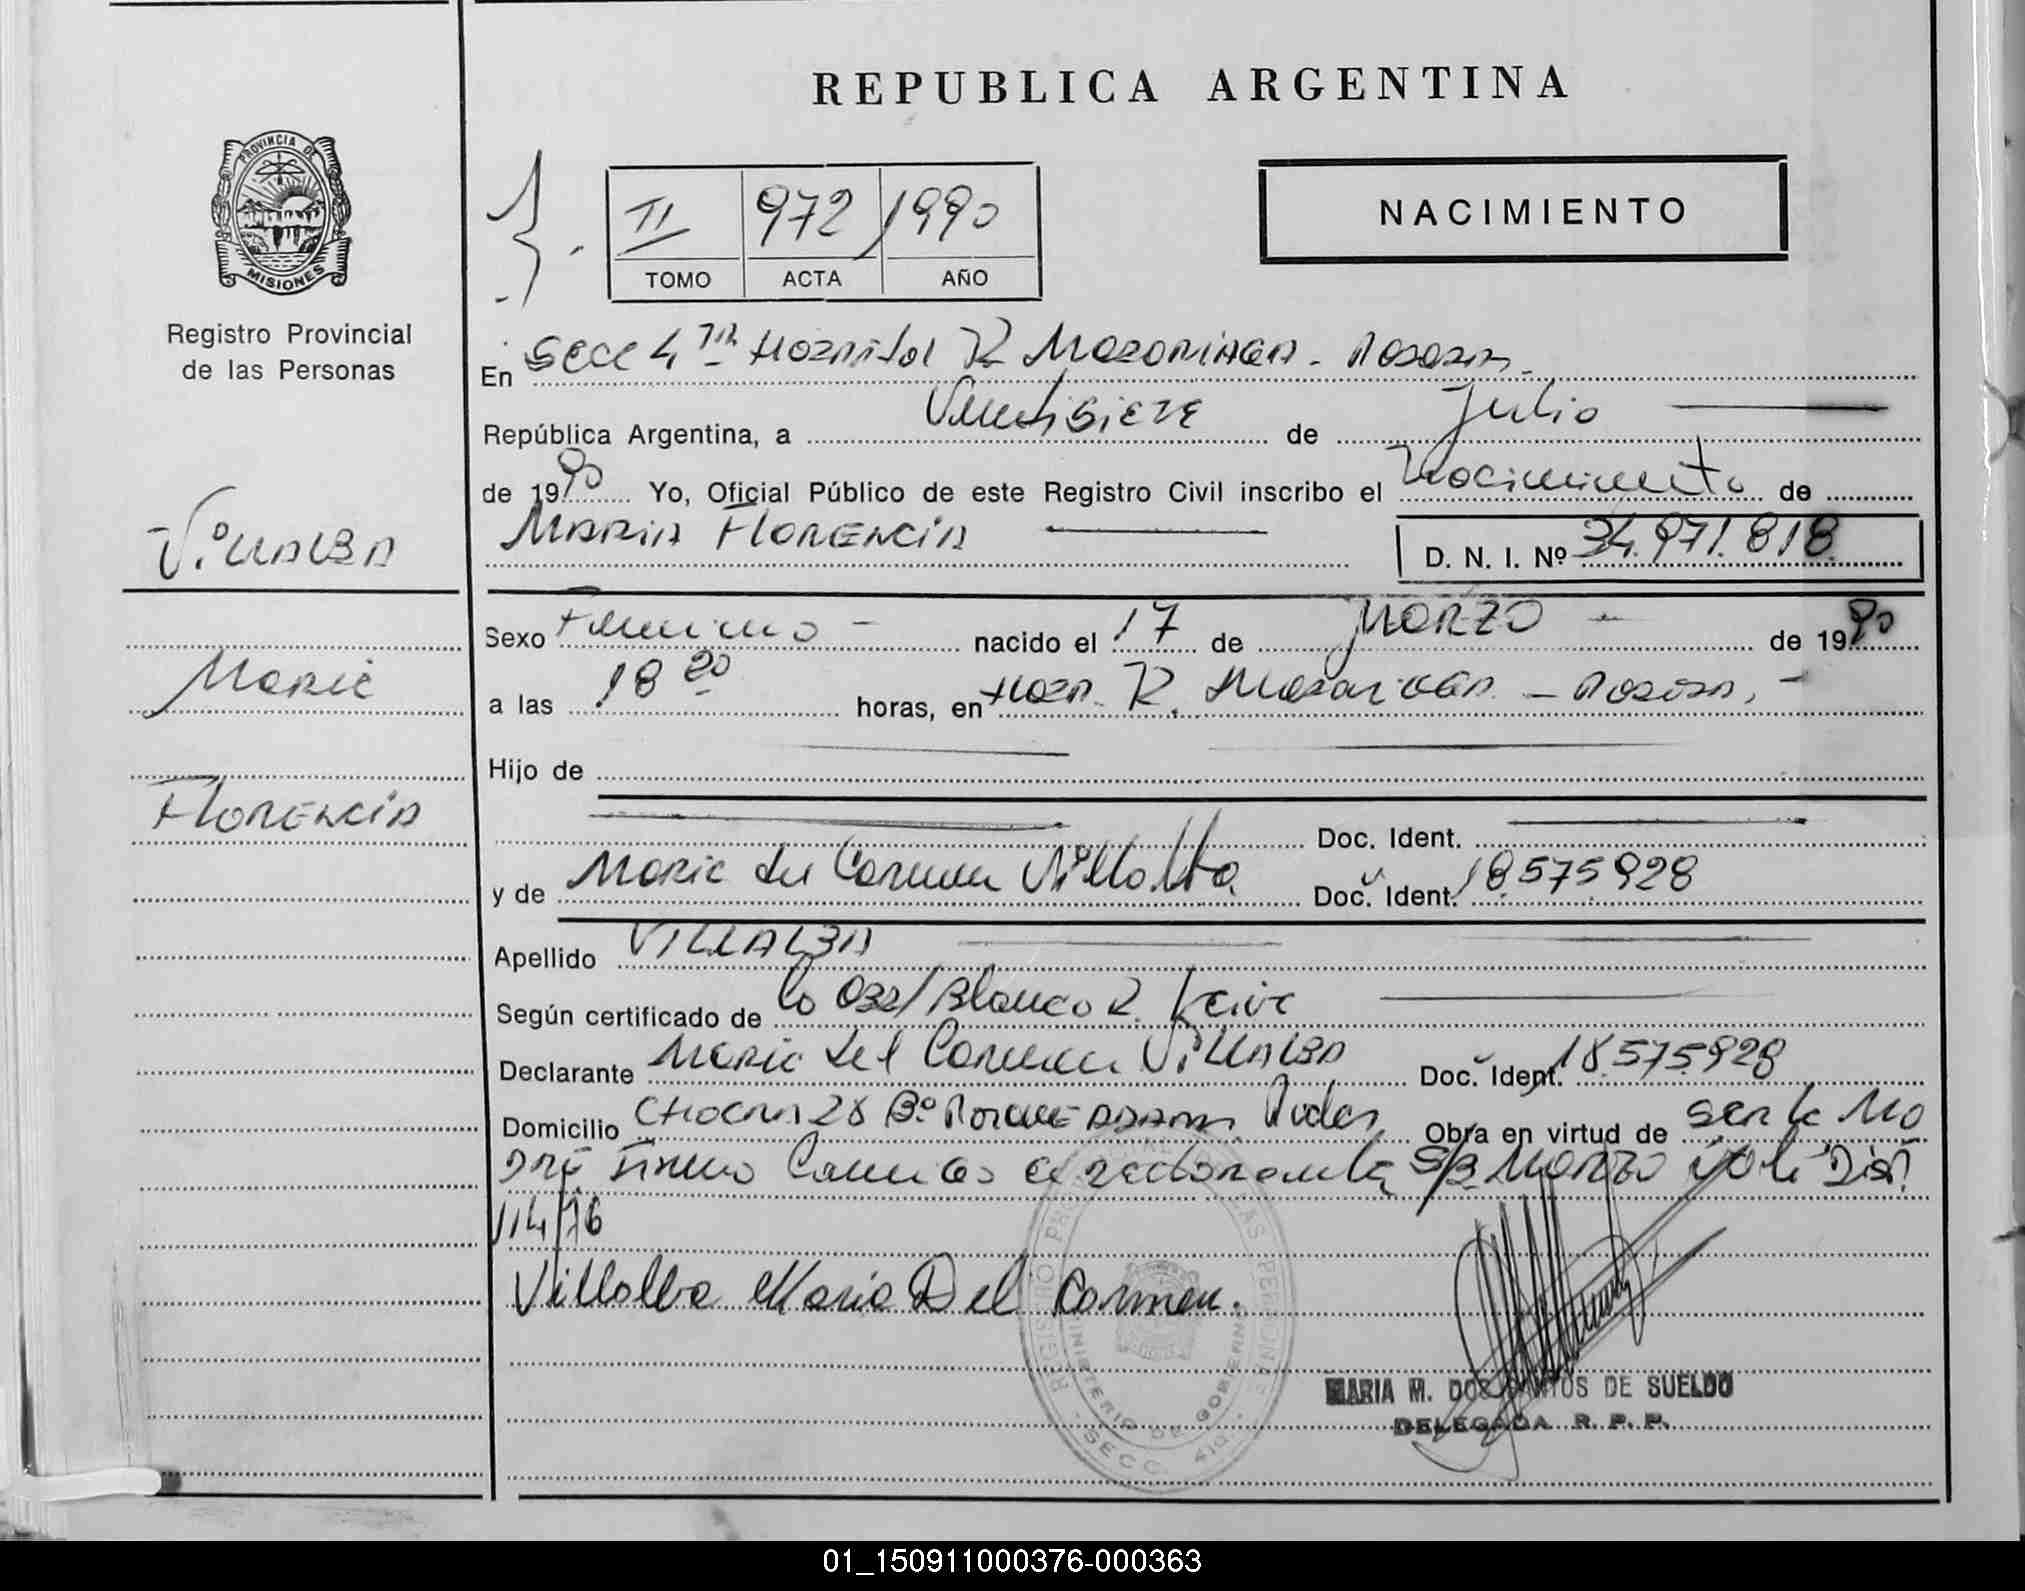 REPUBLICA ARGENTINA
PROVINCIA DE
MISIONES
Registro Provincial
de las Personas
II 972 1990
TOMO ACTA AÑO
NACIMIENTO
En Secc 4ta Hospital R Madariaga - Posadas
República Argentina, a Veintisiete de Julio
de 1990 Yo, Oficial Público de este Registro Civil inscribo el Nacimiento de
MARIA FLORENCIA
D. N. I. Nº 34.971.818
VillALBA
Maria
FLORENCIA
Sexo Femenino - nacido el 17 de MARZO - de 1990
a las 18 20 horas, en Hosp. R. Madariaga - Posadas, -
Hijo de
Doc. Ident.
y de Maria del Carmen Villalba Doc. Ident. 18.575928
Apellido VILLALBA
Según certificado de la Obs/ Blanco R.
Declarante Maria del Carmen VillALBA Doc. Ident. 18.575.928
Domicilio CHACRA 28 Bº Obra en virtud de ser la Ma
dre S/B
114/76
Villalba Maria Del Carmen.
REGISTRO PROVINCIAL DE LAS PERSONAS
MINISTERIO DE GOBIERNO
SECC. 4ta
MARIA M. DOS SANTOS DE SUELDO
DELEGADA R. P. P.
01_150911000376-000363